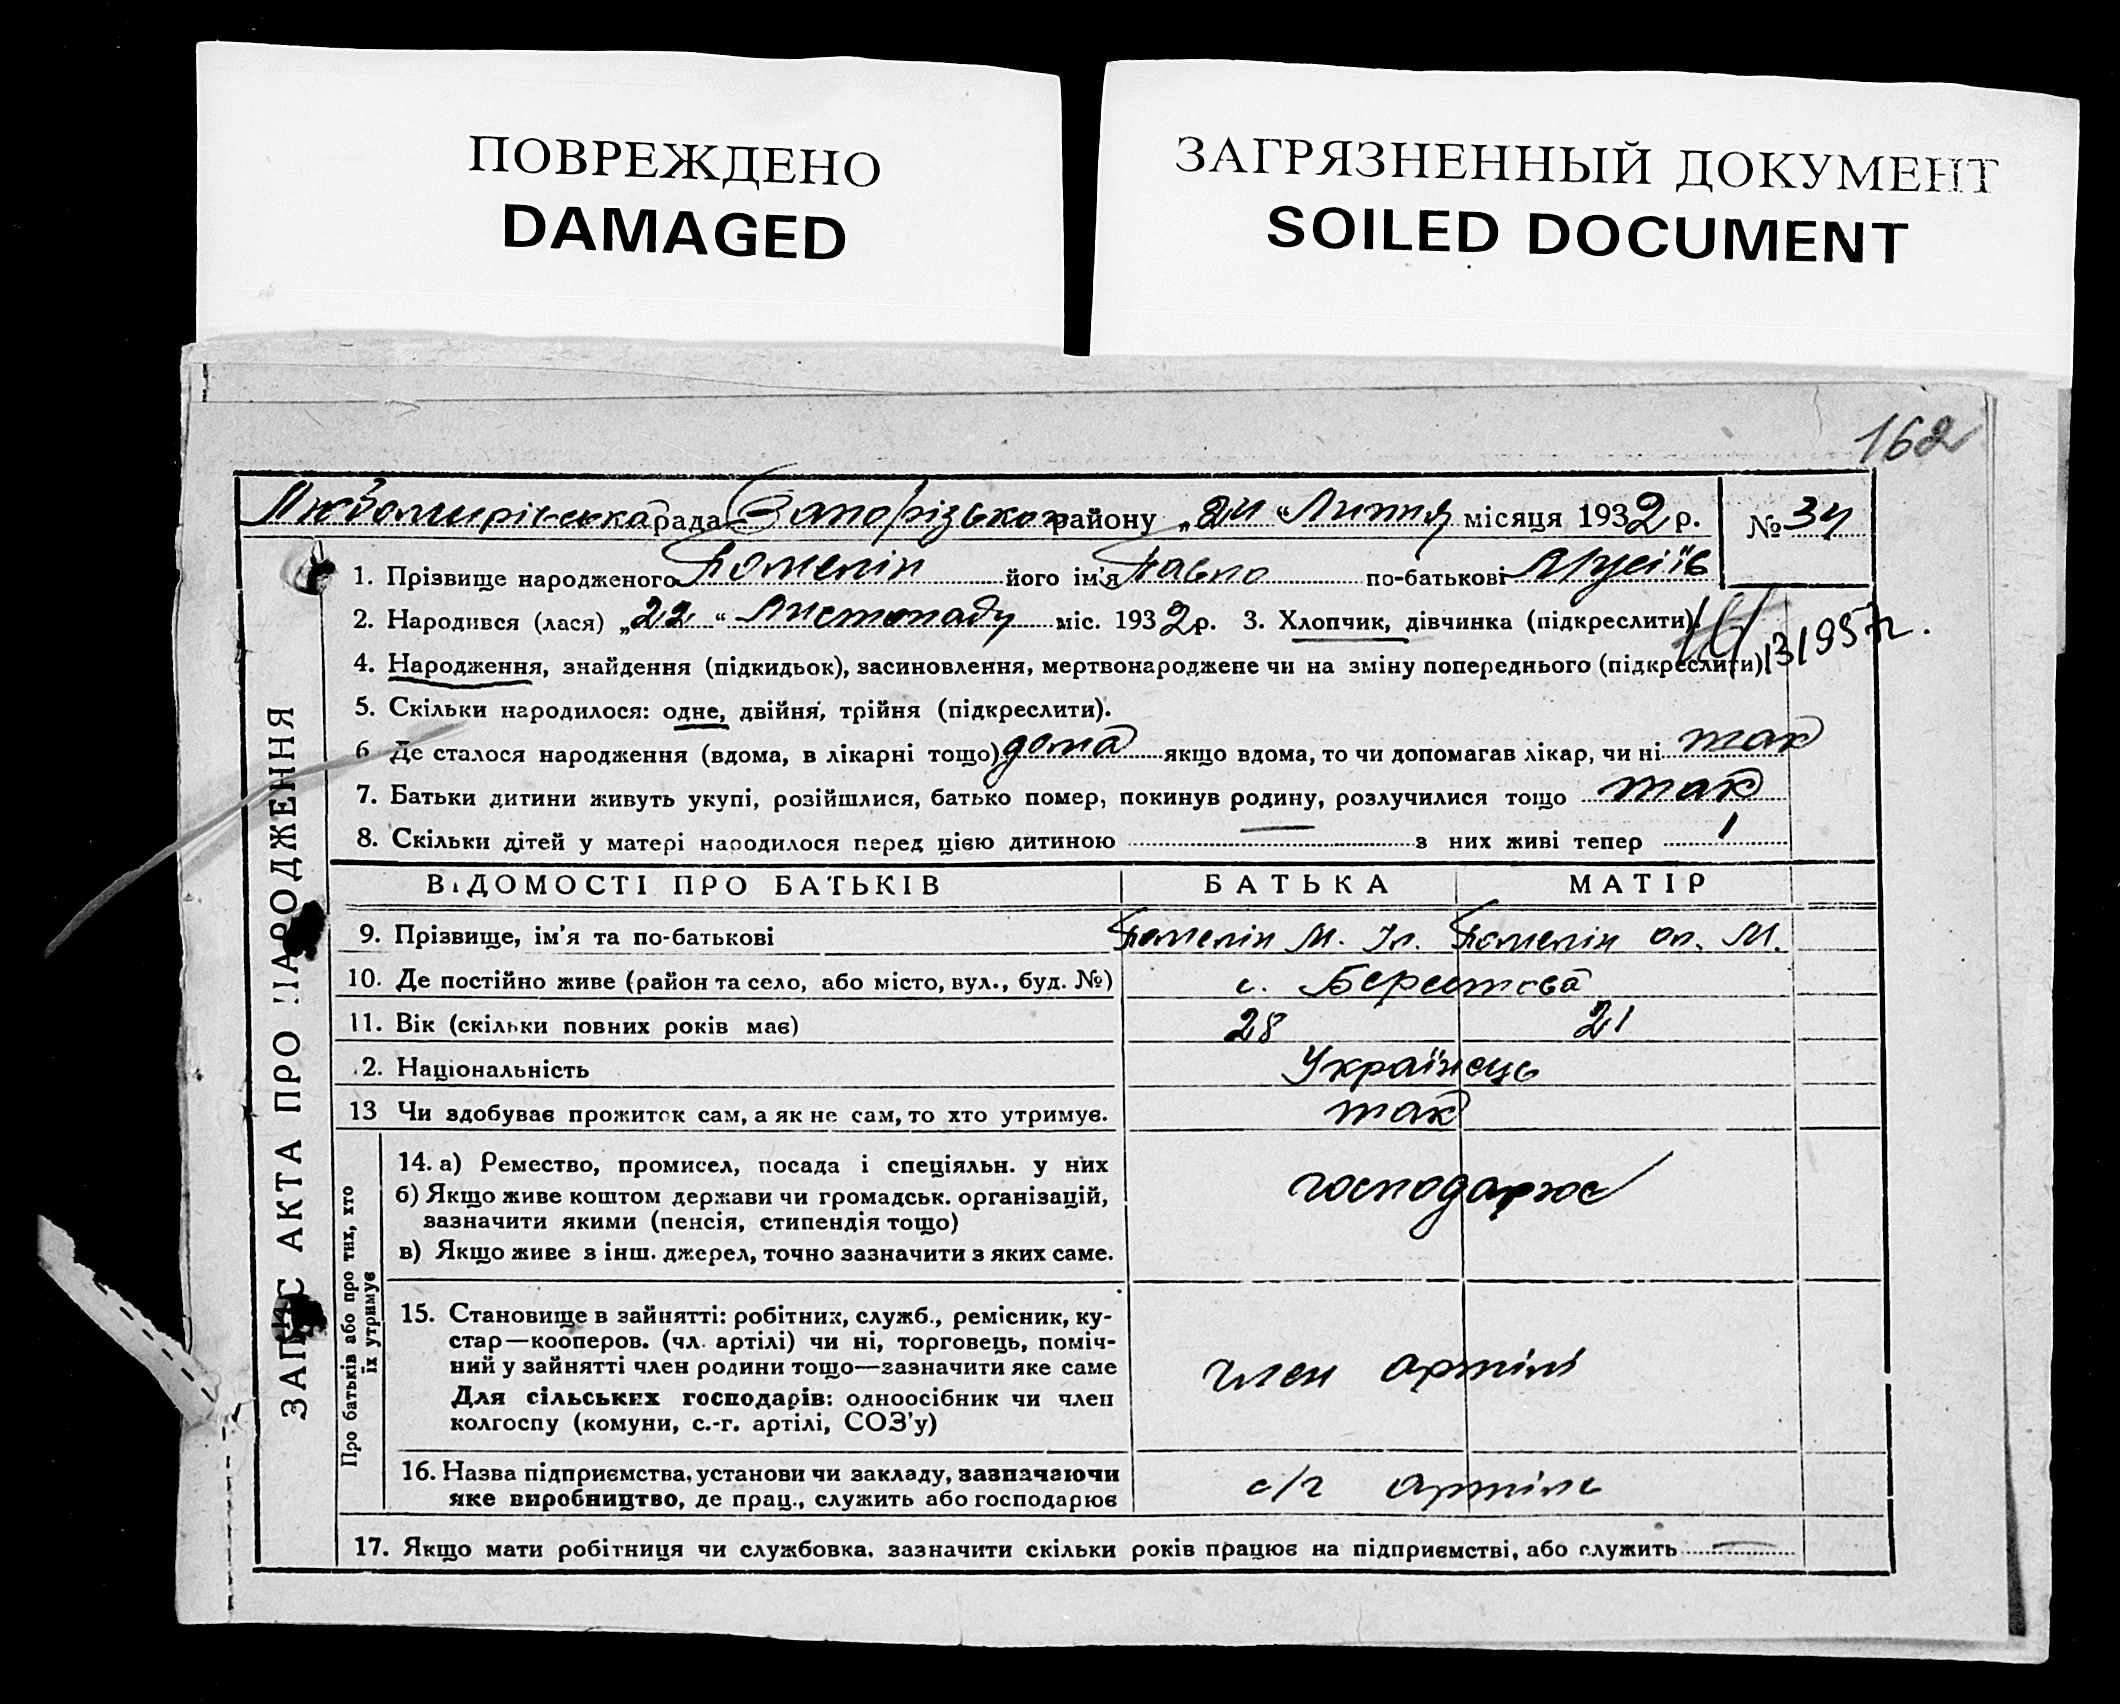 ПОВРЕЖДЕНО
DAMAGED
ЗАГРЯЗНЕННЫЙ ДОКУМЕНТ
SOILED DOCUMENT
162
Любомирівська рада Запорізького району „24 “ Липня місяця 1932 р. № 34
1. Прізвище народженого його ім'я Павло по-батькові
2. Народився (лася) „22 “ Листопаду міс. 1932 р. 3. Хлопчик, дівчинка (підкреслити).
4. Народження, знайдення (підкидьок), засиновлення, мертвонароджене чи на зміну попереднього (підкреслити).
5. Скільки народилося: одне, двійня, трійня (підкреслити).
6 Де сталося народження (вдома, в лікарні тощо) дома якщо вдома, то чи допомагав лікар, чи ні так
7. Батьки дитини живуть укупі, розійшлися, батько помер, покинув родину, розлучилися тощо так
8. Скільки дітей у матері народилося перед цією дитиною — з них живі тепер 1
ЗАПИС АКТА ПРО НАРОДЖЕННЯ
ВІДОМОСТІ ПРО БАТЬКІВ БАТЬКА МАТІР
9. Прізвище, ім'я та по-батькові
10. Де постійно живе (район та село, або місто, вул., буд. №) с. Берестова
11. Вік (скільки повних років має) 28 21
12. Національність Українець
13 Чи здобуває прожиток сам, а як не сам, то хто утримує. так
Про батьків або про тих, хто
їх утримує
14. а) Ремество, промисел, посада і спеціяльн. у них господарює
б) Якщо живе коштом держави чи громадськ. організацій,
зазначити якими (пенсія, стипендія тощо)
в) Якщо живе з інш. джерел, точно зазначити з яких саме.
15. Становище в зайнятті: робітник, служб., ремісник, ку-
стар—кооперов. (чл. артілі) чи ні, торговець, поміч-
ний у зайнятті член родини тощо—зазначити яке саме член артілі
Для сільських господарів: одноосібник чи член
колгоспу (комуни, с.-г. артілі, СОЗ'у)
16. Назва підприємства, установи чи закладу, зазначаючи с/г артіль
яке виробництво, де прац., служить або господарює
17. Якщо мати робітниця чи службовка, зазначити скільки років працює на підприємстві, або служить —